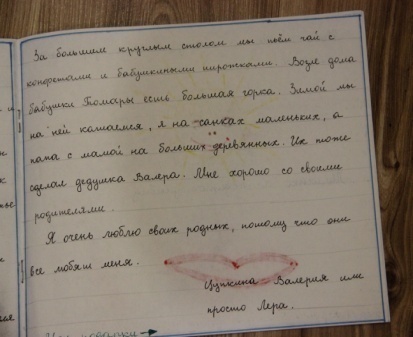 За большим круглым столом мы пьём чай с
конфетами и бабушкиными пирожками. Возле дома
бабушки Тамары есть большая горка. Зимой мы
на ней катаемся, я на санках маленьких, а
папа с мамой на больших деревянных. Их тоже
сделал дедушка Валера. Мне хорошо со своими
родителями.
Я очень люблю своих родных, потому что они
все любят меня.
Валерия или
просто Лера.